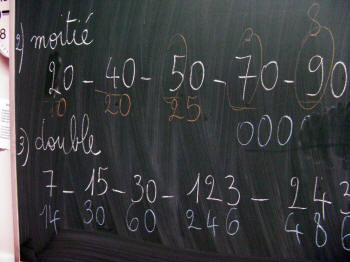 2) moitié
20 - 40 - 50 - 70 - 90
10 20 25
0000
3) double
7 - 15 - 30 - 123 - 243
14 30 60 246 486